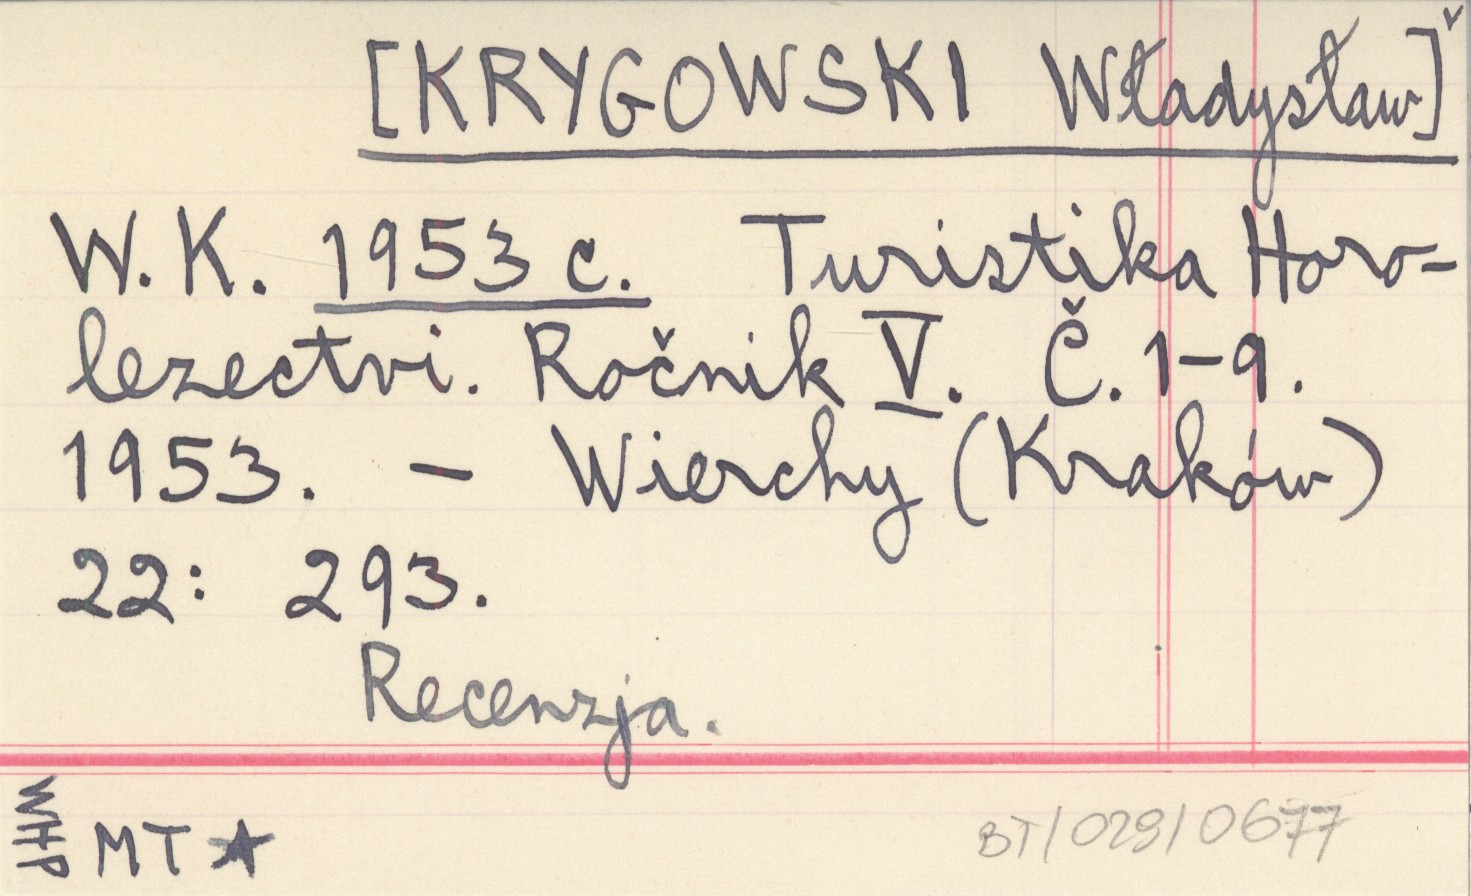 [KRYGOWSKI Władysław]ˇ
W.K. 1953 c. Turistika Horo-
lezectvi. Ročnik V. Č. 1-9.
1953. – Wierchy (Kraków)
22: 293.
Recenzja.
WHP
MT ★
BT/029/0677